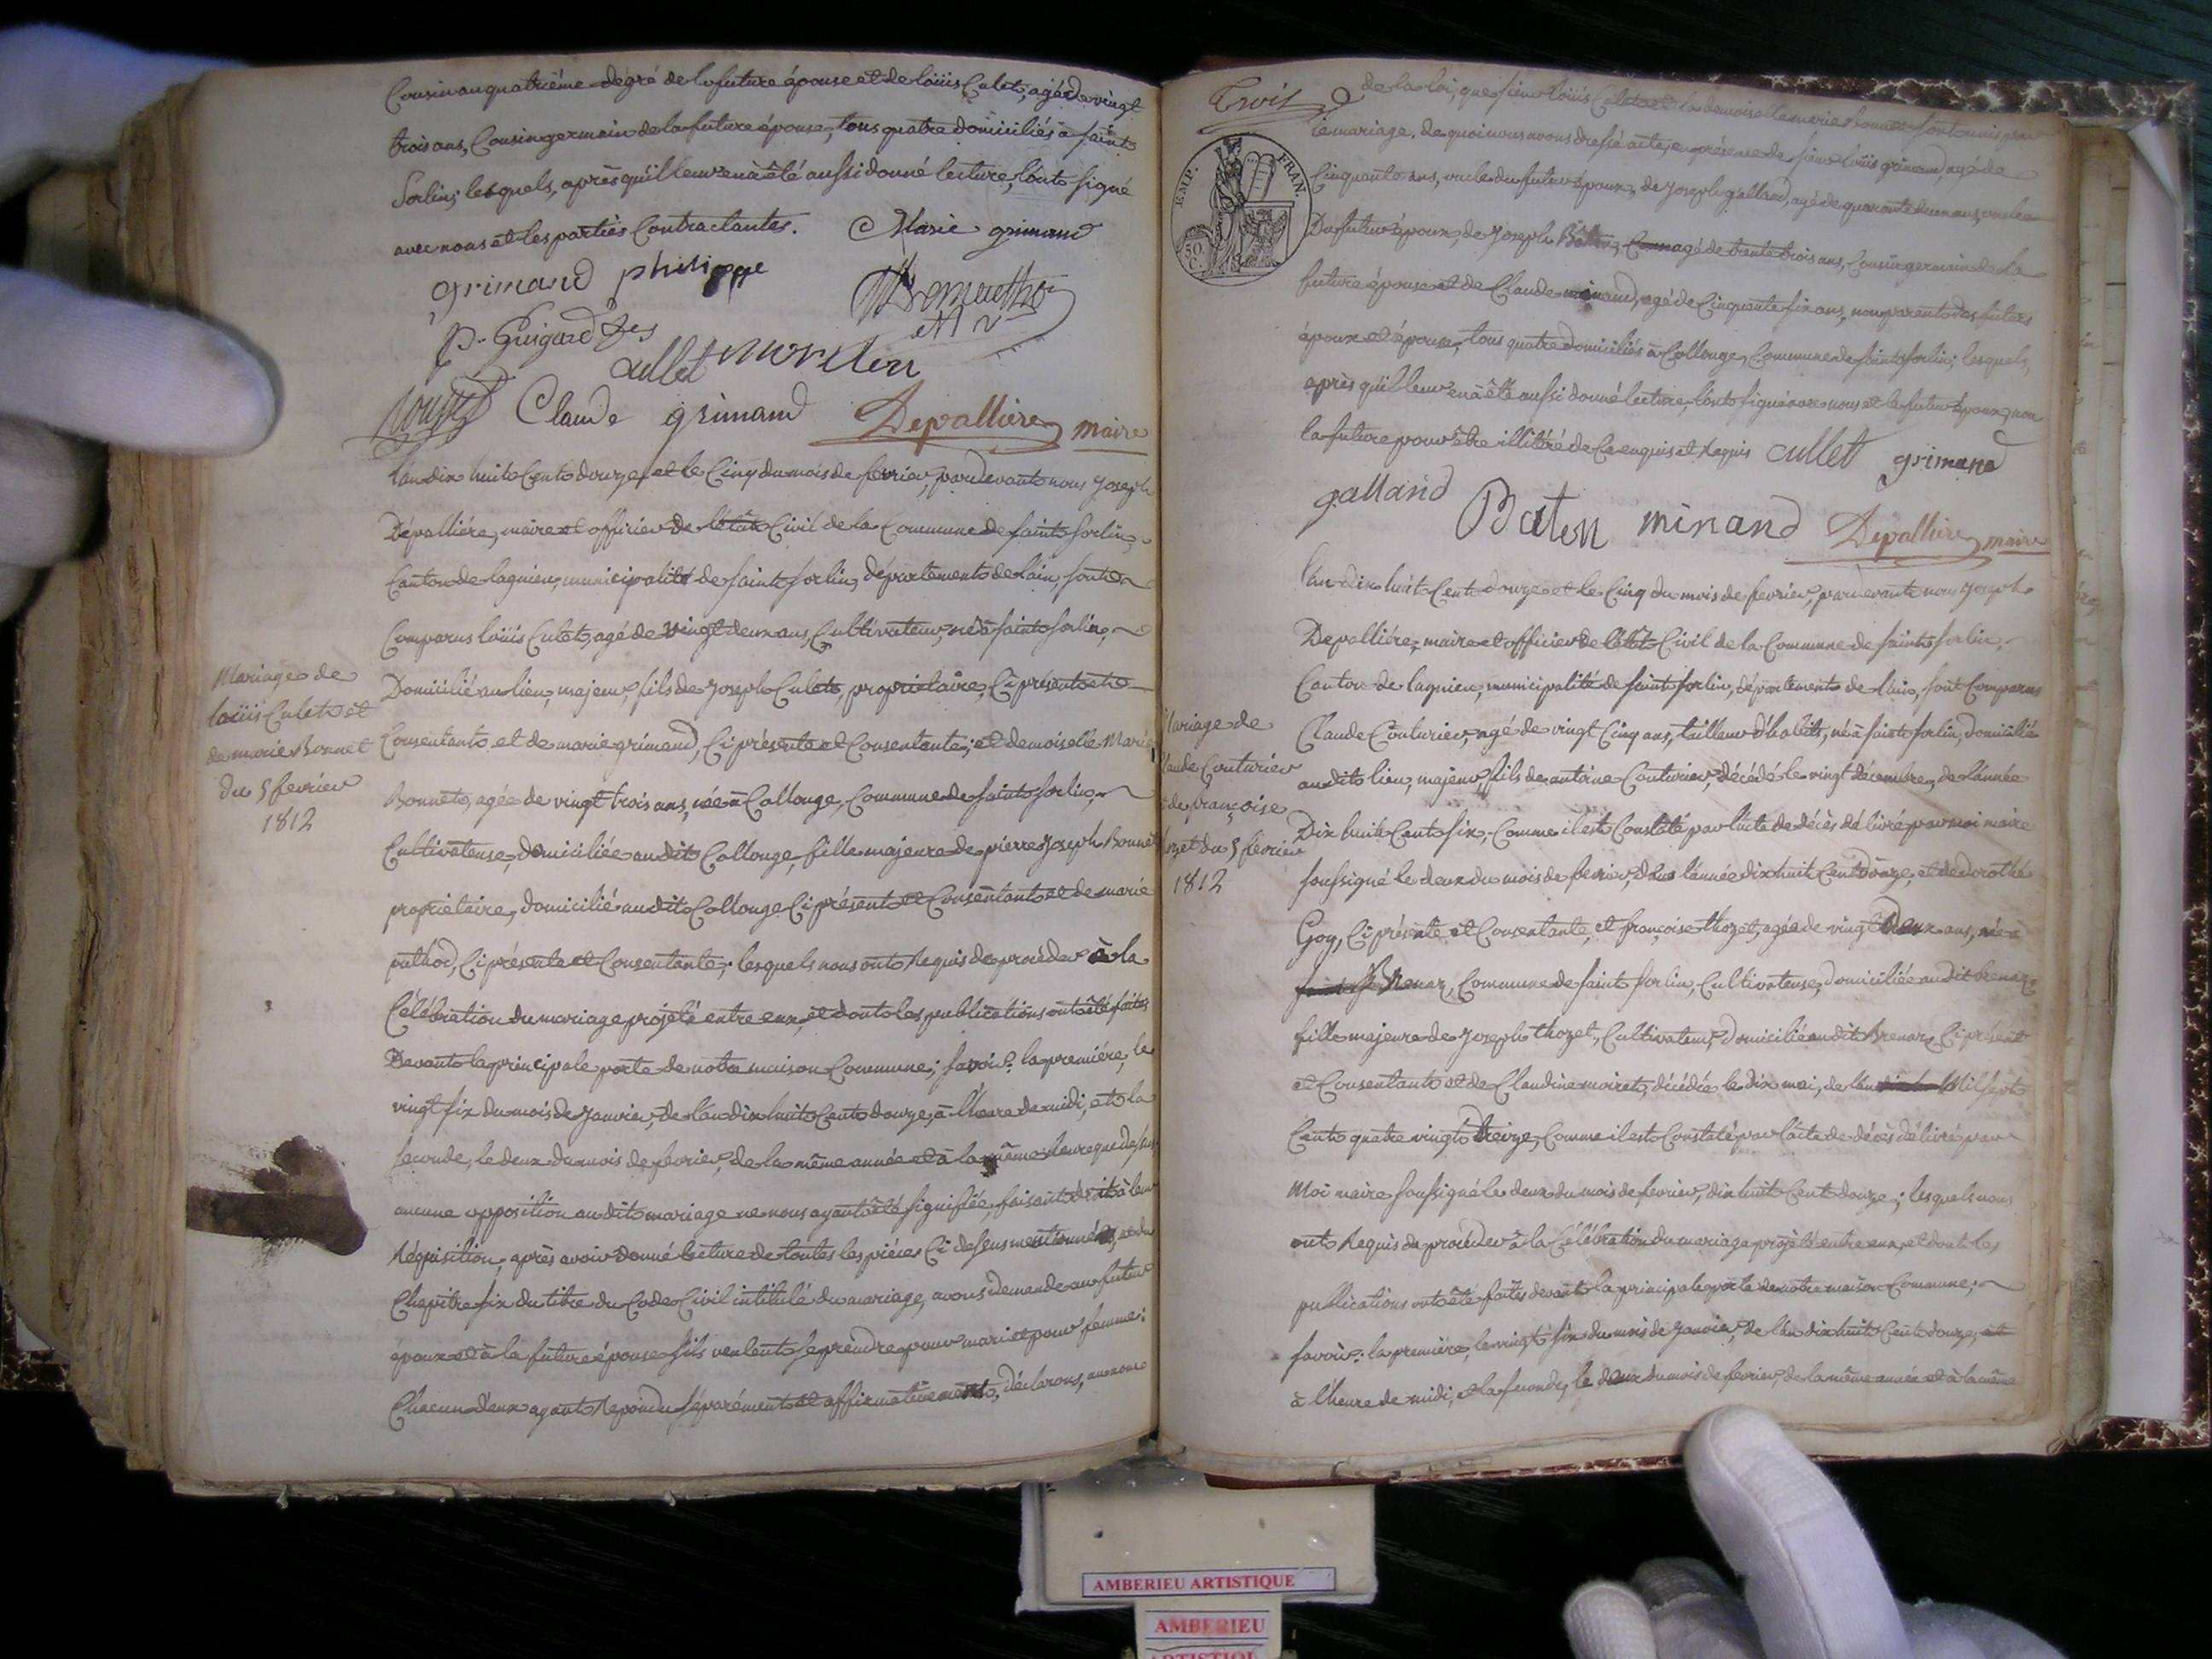 Cousin au quatriéme dégré de la future épouse et de loüis Culet, agé de vingt
trois ans, Cousin germain de la future épouse, tous quatre domiciliés à saint
Sorlin; lesquels, après qu'il leur en à été aussi donné lecture, l'ont signé
avec nous et les parties Contractantes. Marie grimand
grimand philippe
P. Guigard
Cullet
Claude grimand Depalliere maire
l'an dix huit Cent douze, et le Cinq du mois de fevrier, pardevant nous Joseph
Dépalliére, maire et officier de l'état Civil de la Commune de saint Sorlin,
Canton de lagnieu, municipalité de saint Sorlin, département de lain, sont
Comparus loüis Culet, agé de vingt deux ans, Cultivateur, né à saint Sorlin,
Domicilié au lieu, majeur, fils de Joseph Culet, propriétaire, Ci présent et
Consentant, et de marie grimand, Ci présente et Consentante; et demoiselle Marie
Bonnet, agée de vingt trois ans, née à Collonge, Commune de saint Sorlin,
Cultivateuse, domiciliée audit Collonge, fille majeure de pierre Joseph Bonnet
propriétaire, domicilié audit Collonge Ci présent et Consentant et de marie
puthod, Ci présente et Consentante; lesquels nous ont Requis de procéder à la
Célébration du mariage projeté entre eux, et dont les publications ont été faites
Devant la principale porte de notre maison Commune; savoir: la premiére, le
vingt six du mois de Janvier, de l'an dix huit Cent douze, à l'heure de midi, et la
seconde, le deux du mois de fevrier, de la même année et à la même heure que dessus
aucune opposition audit mariage ne nous ayant été signifiée, faisant droit à leur
Réquisition, après avoir donné lecture de toutes les piéces Ci dessus mentionnées, et du
Chapitre six du titre du Code Civil intitulé du mariage, avons demandé au futur
époux et à la future épouse s'ils veulent se prendre pour mari et pour femme:
Chacun d'eux ayant Répondu séparément et affirmativement, déclarons, au nom
Mariage de
loüis Culet et
de marie Bonnet
du 5 fevrier
1812
Trois
de la loi, que sieur loüis Culet et la demoiselle marie Bonnet sont unis par
le mariage. de quoi nous avons dressé acte, en présence de sieur loüis grimand, agé de
EMP. FRAN.
50 C.
Cinquante ans, oncle du futur époux, de Joseph galland, agé de quarante deux ans, oncle
Du futur époux, de Joseph agé de trente trois ans, Cousin germain de la
future épouse et de Claude minand, agé de Cinquante six ans, non parent des futurs
époux et épouse, tous quatre domiciliés à Collonge, Commune de saint Sorlin; lesquels,
après qu'il leur en à été aussi donné lecture, l'ont signé avec nous et le futur époux, non
la future pour être illitéré de Ce enquis et Requis Cullet grimand
galland Baten minand Depalliere maire
l'an dix huit Cent douze et le Cinq du mois de fevrier, pardevant nous Joseph
Depalliére, maire et officier de l'état Civil de la Commune de saint Sorlin,
Canton de lagnieu, municipalité de saint Sorlin, département de l'ain, sont Comparus
Claude Couturier, agé de vingt Cinq ans, tailleur d'habits, né à saint Sorlin, domicilié
audit lieu, majeur, fils de antoine Couturier, décédé le vingt décembre, de l'année
Dix huit Cent six, Comme il est Constaté par l'acte de décès délivré par moi maire
soussigné le deux du mois de fevrier, de l'année dix huit Cent douze, et de dorothé
Goy, Ci présente et Consentante, et françoise thozet, agée de vingt deux ans, née à
Brenaz, Commune de saint Sorlin, Cultivateuse, domiciliée audit Brenaz,
fille majeure de Joseph thozet, Cultivateur, domicilié audit Brenaz, Ci présent
et Consentant et de Claudine moiret, décédée le dix mai, de l'an Mil sept
Cent quatre vingt treize, Comme il est Constaté par l'acte de décès délivré par
Moi maire soussigné le deux du mois de fevrier, dix huit Cent douze; lesquels nous
ont Requis de procéder à la Célébration du mariage projeté entre eux, et dont les
publications ont été faites devant la principale porte de notre maison Commune;
savoir: la premiére, le vingt six du mois de Janvier, de l'an dix huit Cent douze, et
à l'heure de midi, et la seconde, le deux du mois de fevrier, de la même année et à la même
Mariage de
Claude Couturier
et de françoise
thozet du 5 fevrier
1812
AMBERIEU ARTISTIQUE
AMBERIEU
ARTISTIQUE